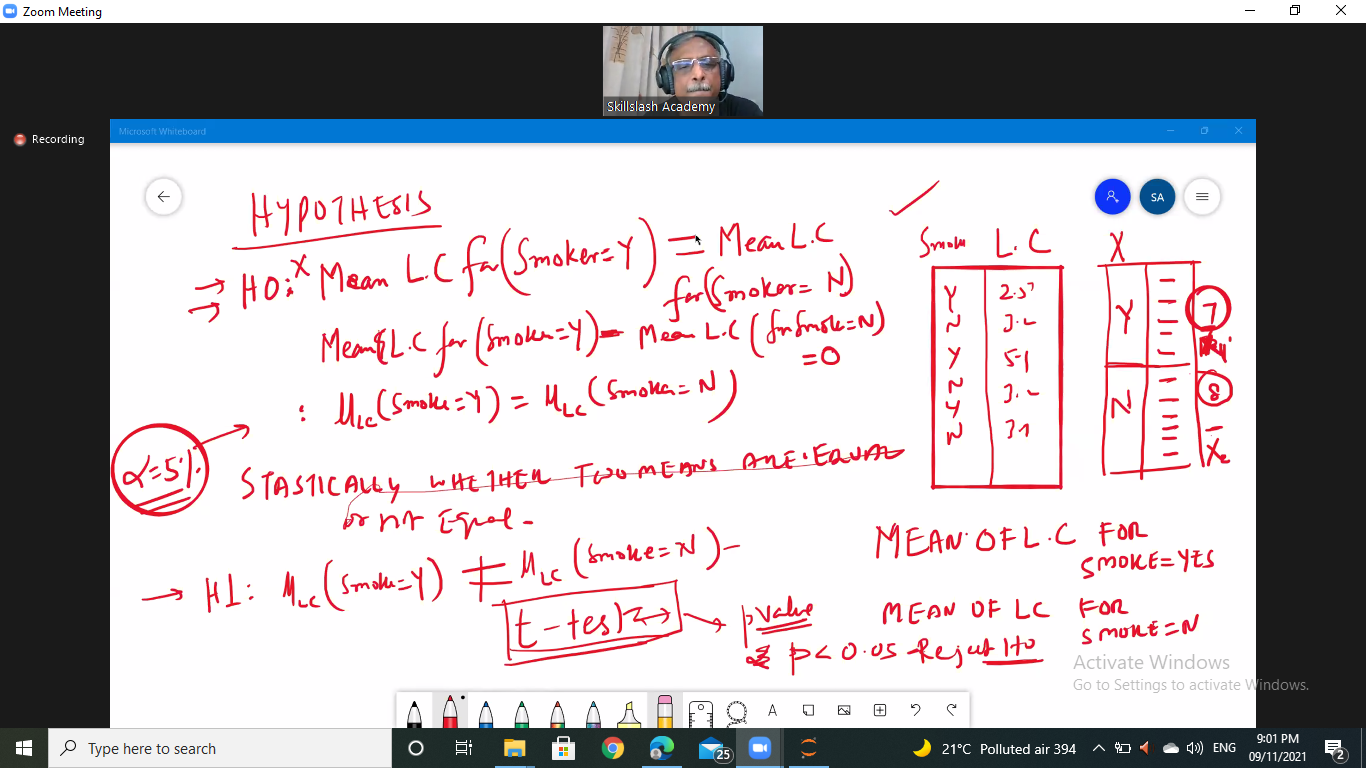 Zoom Meeting
Skillslash Academy
Recording
Microsoft Whiteboard
SA
HYPOTHESIS
H0: X Mean L.C for (Smoker=Y) = Mean L.C
for (Smoker= N)
Mean L.C for (Smoker=Y) - Mean L.C (for Smok=N)
=0
: μLC (Smoke=Y) = μLC (Smoker=N)
α=5%
STASTICALLY WHETHER TWO MEANS ARE EQUAL
or not Equal -
H1: μLC (Smoke=Y) ≠ μLC (Smoke=N) -
t-test
p value
p < 0.05 - Reject H0
Smoke L.C
Y
N 3.2
Y 5.1
N 3.2
Y
N 3.1
X
Y 7
N 8
X2
MEAN OF L.C FOR
SMOKE=YES
MEAN OF LC FOR
SMOKE=N
Activate Windows
Go to Settings to activate Windows.
A
Type here to search
25
21°C Polluted air 394
ENG
9:01 PM
09/11/2021
2